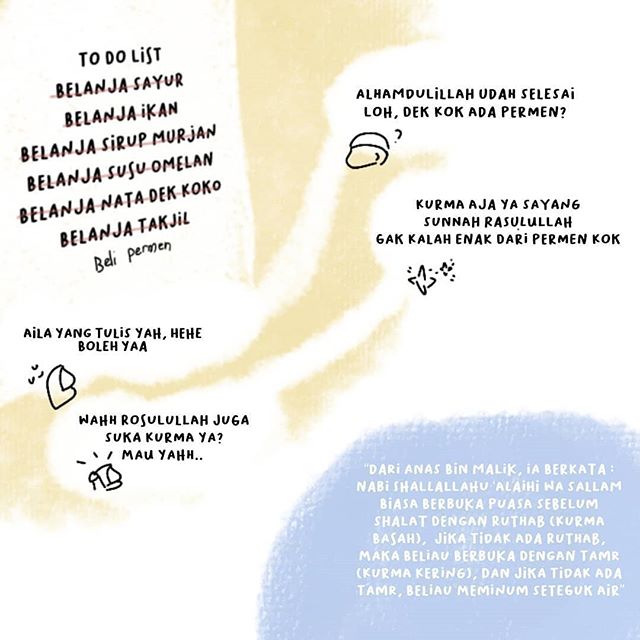 TO DO LIST
BELANJA SAYUR
BELANJA IKAN
BELANJA SIRUP MURJAN
BELANJA SUSU OMELAN
BELANJA NATA DEK KOKO
BELANJA TAKJIL
Beli permen
ALHAMDULILLAH UDAH SELESAI
LOH, DEK KOK ADA PERMEN?
KURMA AJA YA SAYANG
SUNNAH RASULULLAH
GAK KALAH ENAK DARI PERMEN KOK
AILA YANG TULIS YAH, HEHE
BOLEH YAA
WAHH ROSULULLAH JUGA
SUKA KURMA YA?
MAU YAHH..
"DARI ANAS BIN MALIK, IA BERKATA :
NABI SHALLALLAHU 'ALAIHI WA SALLAM
BIASA BERBUKA PUASA SEBELUM
SHALAT DENGAN RUTHAB (KURMA
BASAH), JIKA TIDAK ADA RUTHAB,
MAKA BELIAU BERBUKA DENGAN TAMR
(KURMA KERING), DAN JIKA TIDAK ADA
TAMR, BELIAU MEMINUM SETEGUK AIR"